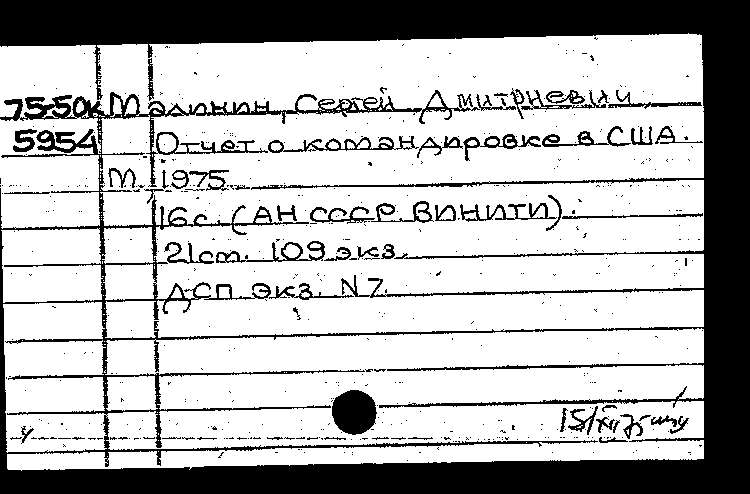 75-50к Малинин, Сергей Дмитриевич
5954 Отчет о командировке в США.
М. 1975
16с. (АН СССР. ВИНИТИ).
21см. 109 экз.
ДСП экз. N 7.
15/XII 75